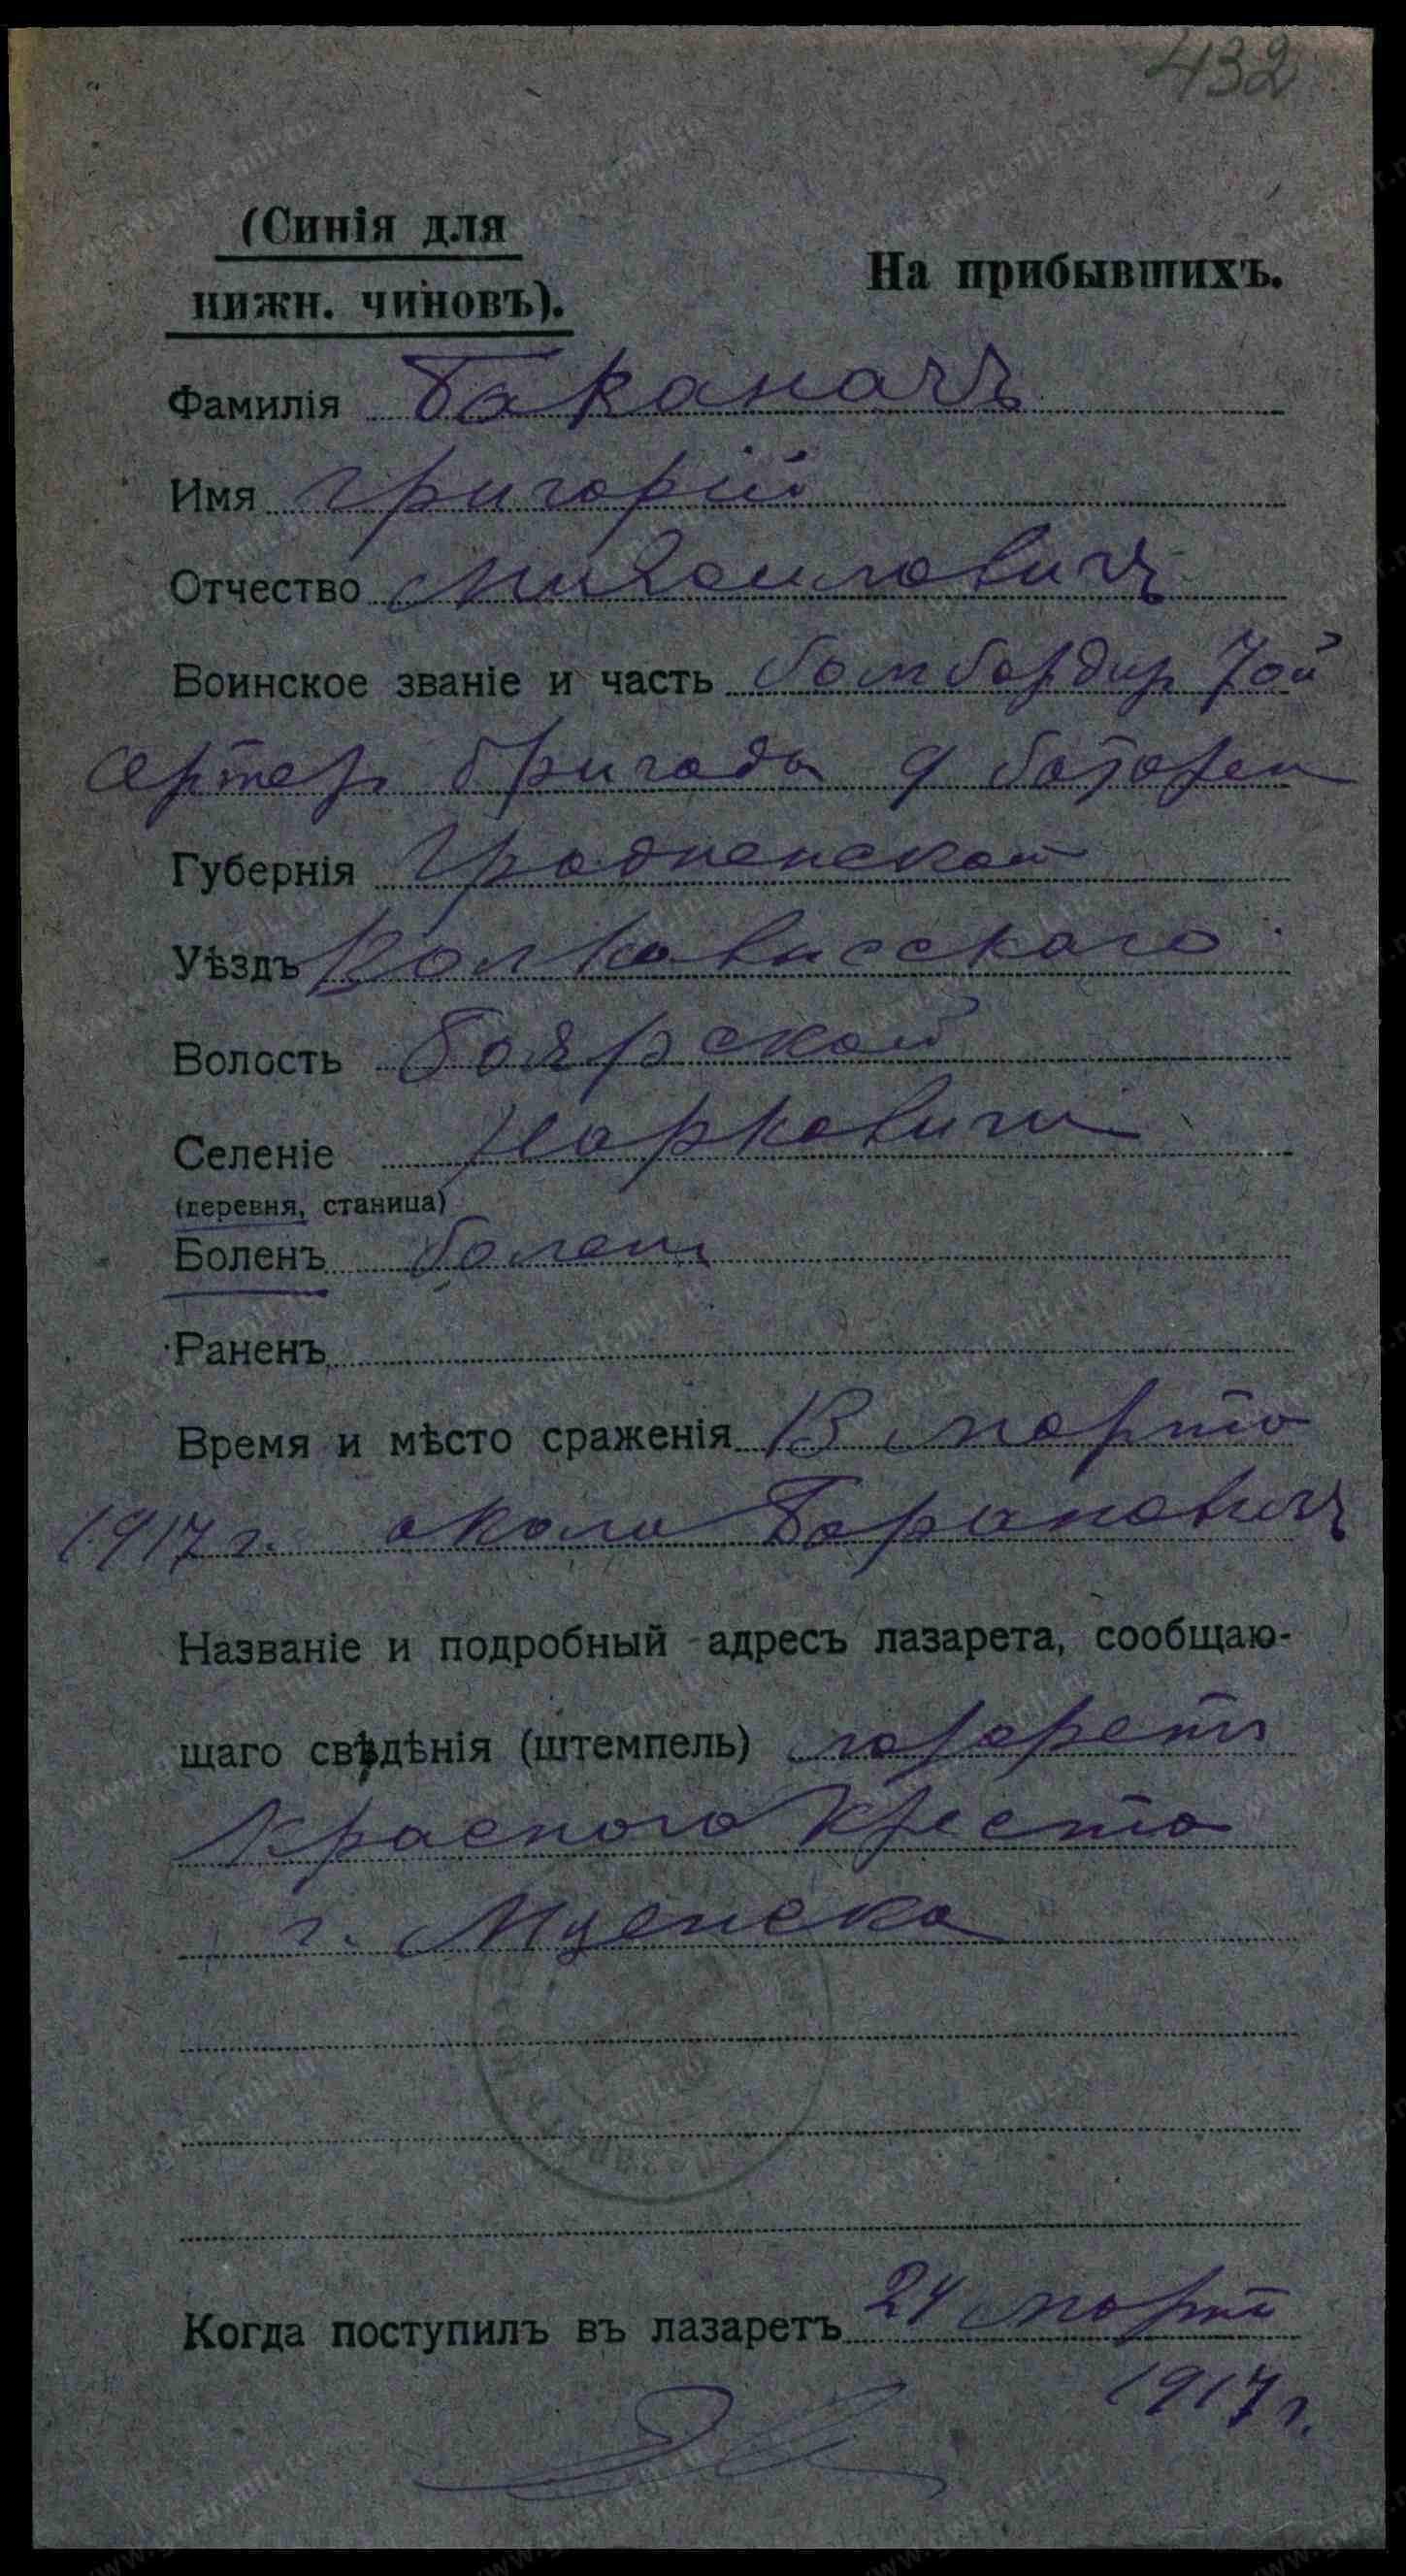 432
(Синія для
нижн. чиновъ).
На прибывшихъ.
Фамилія Баканачъ
Имя Григорій
Отчество Михаиловичъ
Воинское званіе и часть бомбардир 7ой
артер бригады 9 батареи
Губернія Гродненской
Уѣздъ Волковисскаго
Волость Боярской
Селеніе Марковичи
(деревня, станица)
Боленъ болен
Раненъ
Время и мѣсто сраженія 13 марта
1917 г. около Барановичъ
Названіе и подробный адресъ лазарета, сообщаю-
щаго свѣдѣнія (штемпель) лазаретъ
Красного Креста
г. Мценска
Когда поступилъ въ лазаретъ 24 марта
1917 г.